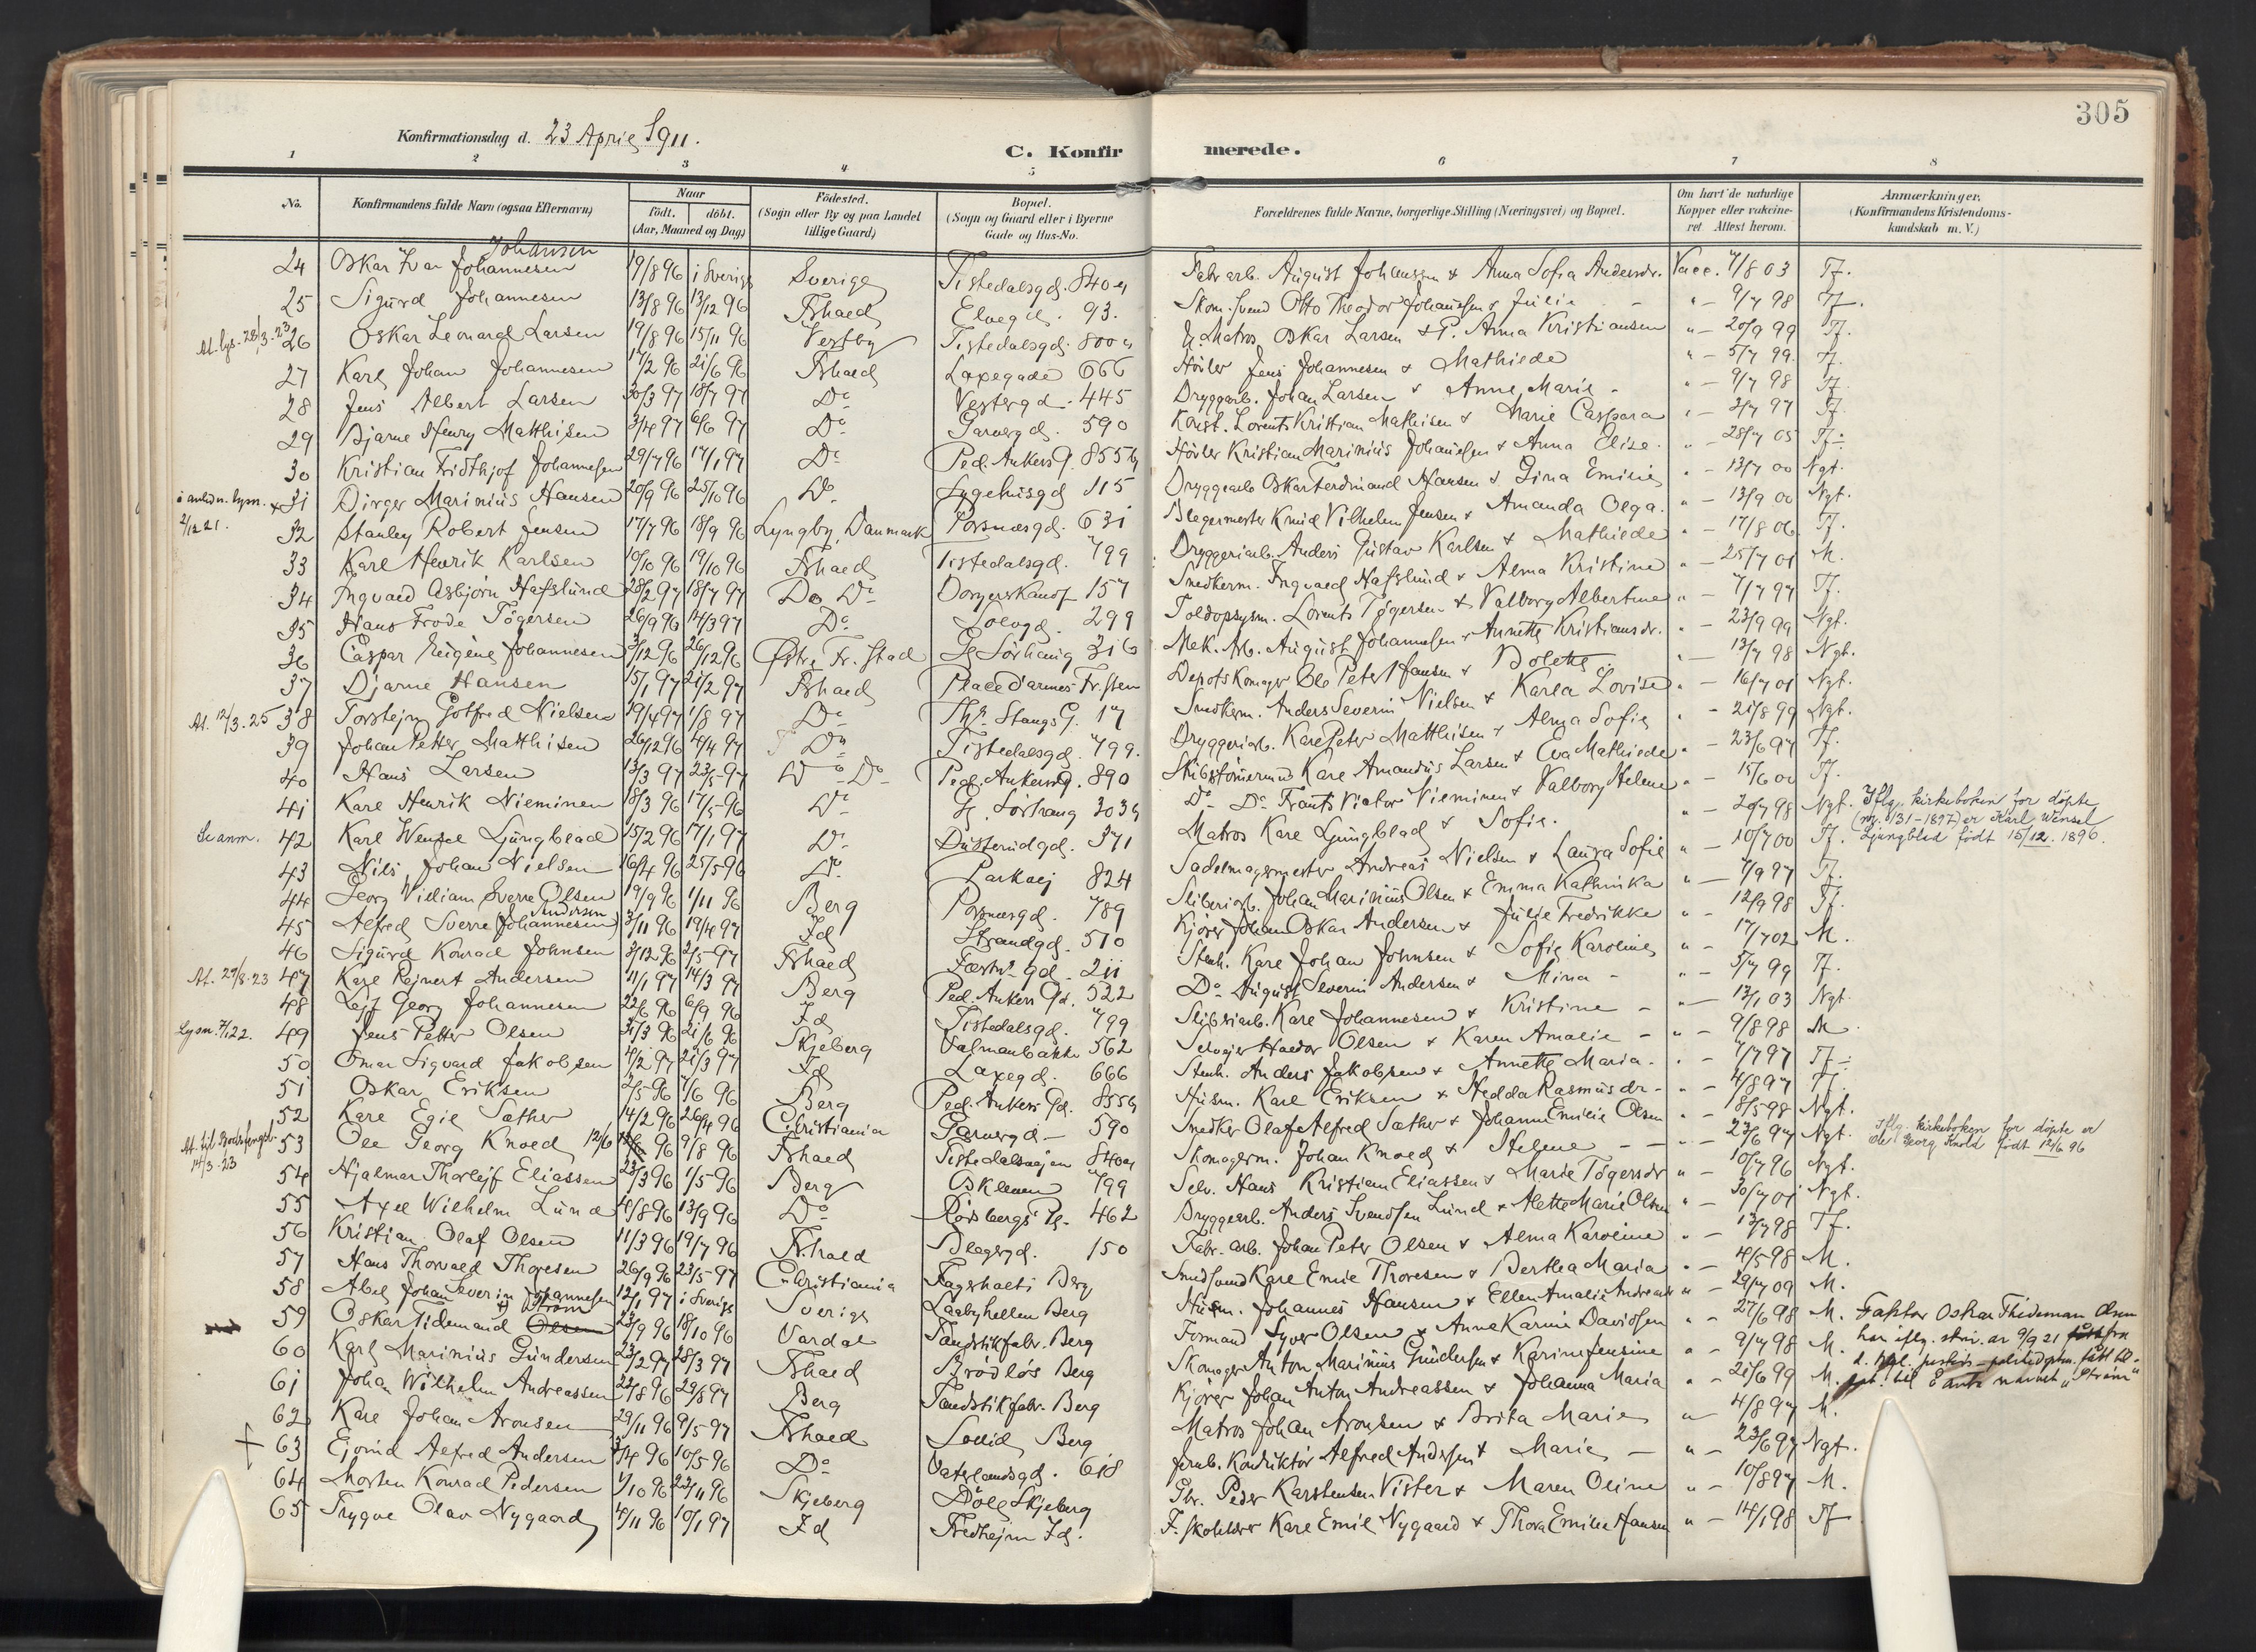 305
Konfirmationsdag d. 23 April 1911.
C. Konfirmerede.
1 2 3 4 5 6 7 8
No. Konfirmandens fulde Navn (ogsaa Efternavn) Naar født. døbt. (Aar, Maaned og Dag) Födested. (Sogn eller By og paa Landet tillige Gaard) Bopæl. (Sogn og Gaard eller i Byerne Gade og Hus-No. Forældrenes fulde Navne, borgerlige Stilling (Næringsvei) og Bopæl. Om havt de naturlige Kopper eller vakcineret. Attest herom. Anmærkninger. (Konfirmandens Kristendomskundskab m. V.)
Johansen
24 Oskar Ivar Johannesen 19/8 96 i Sverige Sverige Tistedalsgd. 840 a Fabr arb. August Johansson & Anna Sofia Andersdr. Vacc. 7/8 03 Tf.
25 Sigurd Johannesen 13/8 96 13/12 96 Frhald Elvegd. 93. Skom. svend Otto Theodor Johannesen & Julie - " - 9/7 98 Tf.
At. lys. 28/3-23 26 Oskar Leonard Larsen 19/8 96 15/11 96 Vestby Tistedalsgd. 800 a Matros Oskar Larsen & Anna Kristiansen " - 20/9 99 Tf.
27 Karl Johan Johannesen 17/2 96 21/6 96 Frhald Laxegade 666 Høvler Jens Johannesen & Mathilde " - 5/7 99. Tf.
28 Jens Albert Larsen 30/3 97 18/7 97 Do Vestergd. 445 Bryggarb. Johan Larsen & Anne Marie - " - 9/7 98 Tf.
29 Bjarne Henry Matthisen 3/4 97 6/6 97 Do Garvergd. 590 Konst. Lorents Kristian Mathisen & Marie Caspara " - 2/7 97 Tf.
30 Kristian Fridthjof Johannesen 29/7 96 17/1 97 Do Ped. Ankers G. 855 b Høvler Kristian Marinius Johannesen & Anna Elise. " - 28/7 05 Tf.
31 Birger Marinius Hansen 20/9 96 25/10 96 Do Sygehusgd 115 Bryggearb Oskar Ferdinand Hansen & Gina Emilie " - 13/7 00 Ngt.
2/12 21. 32 Stanley Robert Jensen 17/7 96 18/9 96 Lyngby, Danmark Porsnæsgd. 631 Blegermester Knud Vilhelm Jensen & Amanda Olga. " - 13/9 00 Ngt.
33 Karl Henrik Karlsen 10/10 96 19/10 96 Frhald Tistedalsgd. 799 Bryggeriarb. Anders Gustav Karlsen & Mathilde " - 17/8 06 Tf.
34 Ingvald Asbjørn Hafslund 28/2 97 18/7 97 Do Do 157 Snedkerm. Ingvald Hafslund & Alma Kristine " - 25/7 01 M.
35 Hans Frode Tögersen 26/9 96 14/3 97 Do 299 Toldopsynm. Lorents Tögersen & Valborg Albertine " - 7/7 97 Tf.
36 Caspar Eugene Johannesen 3/12 96 26/12 96 Østre Fr. stad G. Sørhaug 316 Mek. Arb. August Johannesen & Annette Kristiansdr. " - 23/9 99 Ngt.
37 Bjarne Hansen 15/1 97 21/2 97 Frhald Place d'armes Fr. sten Depotskomager Ole Peter Hansen & Bolette " - 13/7 98 Ngt.
At. 12/3-25 38 Torstejn Gotfred Nielsen 29/4 97 1/8 97 Do Thr. Stangs G. 17 Snedkerm. Anders Severin Nielsen & Karla Lovise " - 16/7 01 Ngt.
39 Johan Petter Matthisen 26/12 96 4/4 97 Do Tistedalsgd. 799. Bryggeriarb. Karl Peter Matthisen & Alma Sofie " - 21/8 99 Ngt.
40 Hans Larsen 13/3 97 23/5-97 Do Do Ped. Ankers G. 890 Stibstømmermand Karl Amandus Larsen & Eva Mathilde " - 23/6 97 Tf.
41 Karl Henrik Nieminen 18/3 96 17/5-96 Do G. Sørhaug 303 b Do Do Frants Victor Nieminen & Valborg Helene " - 15/6 00 Tf.
Se anm. 42 Karl Wenzel Ljungblad 15/2 96 17/1 97 Do Busterudgd. 371 Matros Karl Ljungblad & Sofie. " - 20/7 98 Ngt. Iflg. kirkeboken for døpte
(nr. 131-1897) er Karl Wensel
Ljungblad født 15/12. 1896.
43 Nils Johan Nielsen 16/4 96 25/5-96 Do Parkvej 824 Sadelmagermester Andreas Nielsen & Laura Sofie " - 10/7 00 Tf.
44 Georg William Sverre Olsen 19/9 96 1/11 96 Berg Porsnæsgd. 789 Sliberiarb. Johan Marinius Olsen & Emma Kathinka " - 7/9 97 Tf.
Andersen
45 Alfred Sverre (Johannesen) 3/11 96 19/4 97 Id Strandgd. 510 Kjører Johan Oskar Andersen & Julie Fredrikke " - 12/9 98 Tf.
46 Sigurd Konrad Johnsen 3/12 96 2/5-97 Frhald Fæstn. gd. 211 Stenh. Karl Johan Johnsen & Sofie Karoline " - 17/7 02 M.
At. 29/8-23 47 Karl Rejnert Andersen 11/1 97 14/3 97 Berg Ped. Ankers Gd. 522 Do August Severin Andersen & Mina - " - 5/7 99 Tf.
48 Leif Georg Johannesen 22/6 96 6/9 96 Id Tistedalsgd. 799 Sliberiarb. Karl Johannesen & Kristine - " - 13/1 03 Ngt.
Lysn. 7/1 22. 49 Jens Petter Olsen 31/3 96 21/6 96 Skjeberg Valmanbakke 562 Selvejer Haldor Olsen & Karen Amalie - " - 9/8 98 M.
50 Omar Sigvard Jakobsen 4/2 97 21/3 97 Id Laxegd. 666 Stenh. Anders Jakobsen & Annette Maria. " - 7/7 97 Tf.
51 Oskar Eriksen 2/5 96 7/6 96 Berg Ped. Ankers Gd. 855 b Husm. Karl Eriksen & Hedda Rasmusdr - " - 4/8 97 Tf.
52 Karl Egil Sæther 14/2 96 26/4 96 Christiania Garvergd - 590 Snedker Olaf Alfred Sæther & Johanne Emilie Olsen " - 18/5 98 Ngt.
At. til Bodsfengsl. 14/3-23 53 Ole Georg Knold 12/6 96 9/8 96 Frhald Tistedalsvejen 840 a Skomagerm. Johan Knold & Helene - - " - 23/6 97 Ngt. Iflg. kirkeboken for døpte er
Ole Georg Knold født 12/6 96
54 Hjalmar Thorlejf Eliassen 23/3 96 1/5-96 Berg Oskleven 799 Selv. Hans Kristian Eliassen & Marie Tögersdr " - 10/7 96 Ngt.
55 Axel Wilhelm Lund 4/8 96 13/9 96 Do Rødsbergs Pl. 462 Bryggearb. Anders Svendsen Lund & Alette Marie Olsen " - 30/7 01 Ngt.
56 Kristian Olaf Olsen 11/3 96 19/7 96 Frhald Blegergd. 150 Fabr. arb. Johan Peter Olsen & Alma Karoline " - 13/7 98 Tf.
57 Hans Thorvald Thoresen 26/9 96 23/5-97 Christiania Fagerholt i Berg Smedsvend Karl Emil Thoresen & Berthea Maria " - 4/5 98 M.
58 Abel Johan Severin Johannesen 12/1 97 i Sverige Sverige Laabyhellen Berg Husm. Johannes Hansen & Ellen Amalie Andreasdr " - 29/7 09 M.
Strøm
59 Oskar Tidemand Olsen 23/9 96 18/10 96 Vardal Tandstikfabr. Berg Formand Syver Olsen & Anne Karine Davidsen " - 27/6 98 M. Faktor Oskar Thideman Olsen
har iflg. skriv. av 9/9 21 fra
d. kgl. justis- politidptm. fått til-
til å anta navnet "Strøm"
60 Karl Marinius Gundersen 23/2 97 28/3 97 Frhald Brødløs Berg Skomager Anton Marinius Gundersen & Karine Jensine " - 9/7 98 M.
61 Johan Wilhelm Andreassen 22/8 96 29/8 97 Berg Tandstikfabr. Berg Kjører Johan Anton Andreassen & Johanna Maria " - 21/6 99 M.
62 Karl Johan Aronsen 29/11 96 9/5-97 Frhald Sollid Berg Matros Johan Aronsen & Brita Marie " 4/8 97 M.
63 Ejvind Alfred Andersen 3/4 96 10/5-96 Do Vaterlandsgd. 618 Jernb. Konduktør Alfred Andersen & Marie - " - 23/6 97 Ngt.
64 Morten Konrad Pedersen 1/10 96 22/11 96 Skjeberg Dölg Skjeberg Gbr. Peder Karstensen Vister & Maren Oline " - 10/8 97 M.
65 Trygve Olav Nygaard 4/11 96 10/1 97 Id Fredhejm Id. F. skoleldr Karl Emil Nygaard & Thora Emilie Hansen " - 14/1 98 Tf